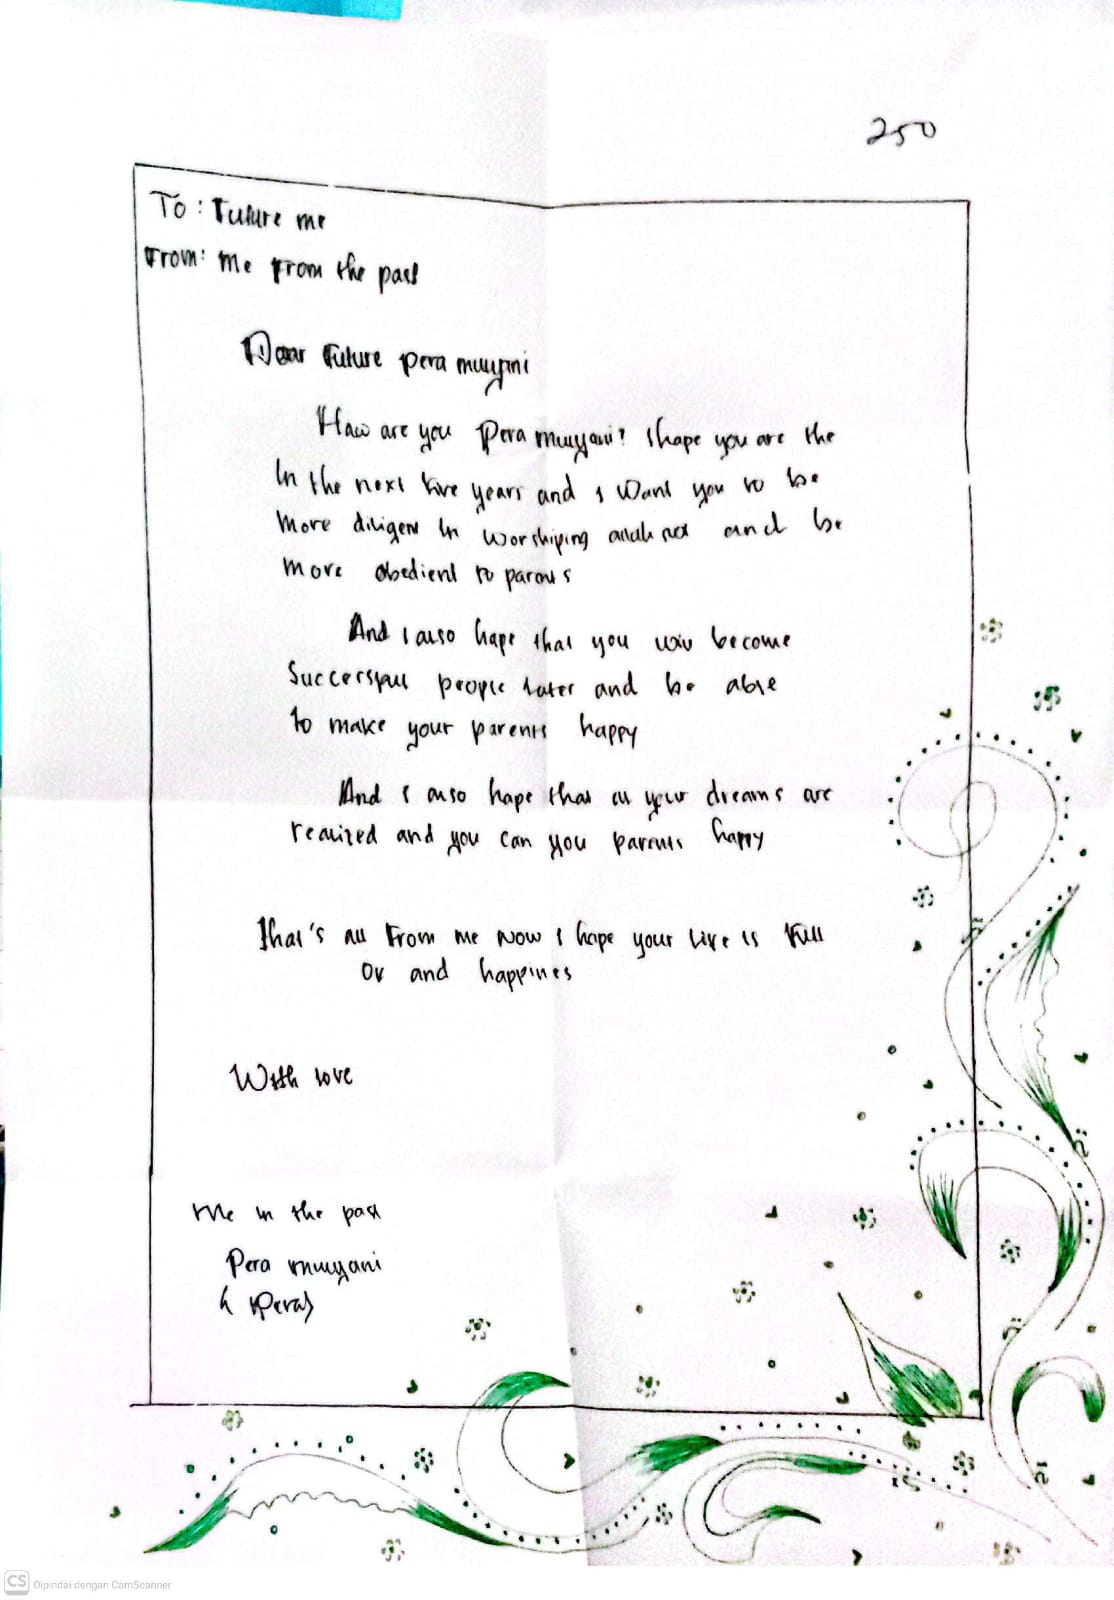 250
To : Future me
From: Me From the past
Dear Future Pera muyani
Haw are you Pera muyani? I hape you are the
In the next five years and I Want you to be
more diligent In worshiping and be
more obedient to parents
And I also hape that you will become
Succersfull people later and be able
to make your parents happy
And I also hape that all your dreams are
realized and you can you parents happy
That's all From me now I hape your Live Is Full
Of and happines
With love
Me in the past
Pera muyani
(Pera)
CS Dipindai dengan CamScanner